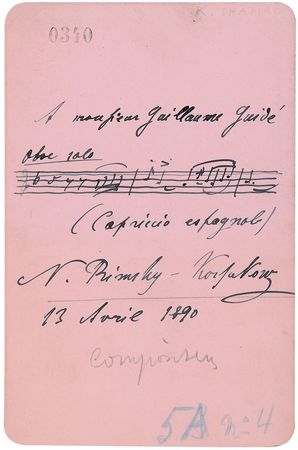 K. SHAPIRO
0340
A monsieur Guillaume Guidé
Oboe solo
(Capriccio espagnole)
N. Rimsky-Korsakow
13 Avril 1890
Compositeur
5A nº 4